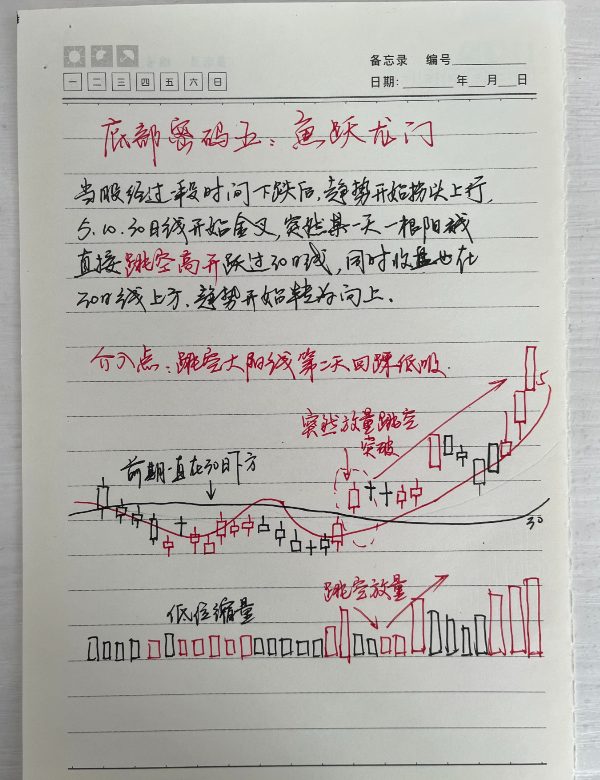 备忘录 编号
一 二 三 四 五 六 日
日期: 年 月 日
底部密码五：鱼跃龙门
当股经过一段时间下跌后，趋势开始拐头上行，
5.10.30日线开始金叉，突然某一天一根阳线
直接跳空高开跃过30日线，同时收盘也在
30日线上方，趋势开始转为向上。
介入点：跳空大阳线第二天回踩低吸．
突然放量跳空
突破
前期一直在30日下方
5
30
跳空放量
低位缩量